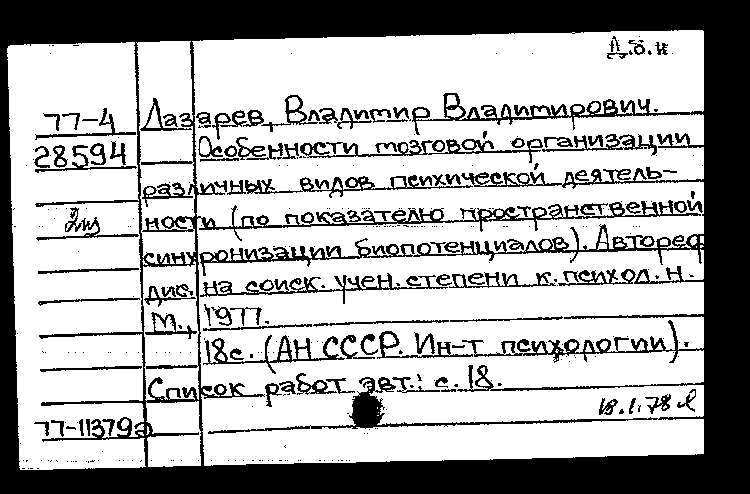 Д.б.н
77-4 Лазарев, Владимир Владимирович.
28594 Особенности мозговой организации
различных видов психической деятель-
ности (по показателю пространственной
синхронизации биопотенциалов). Автореф
дис. на соиск. учен. степени к. психол. н.
М., 1977.
18с. (АН СССР. Ин-т психологии).
Список работ авт.: с. 18.
18.1.78
77-11379а